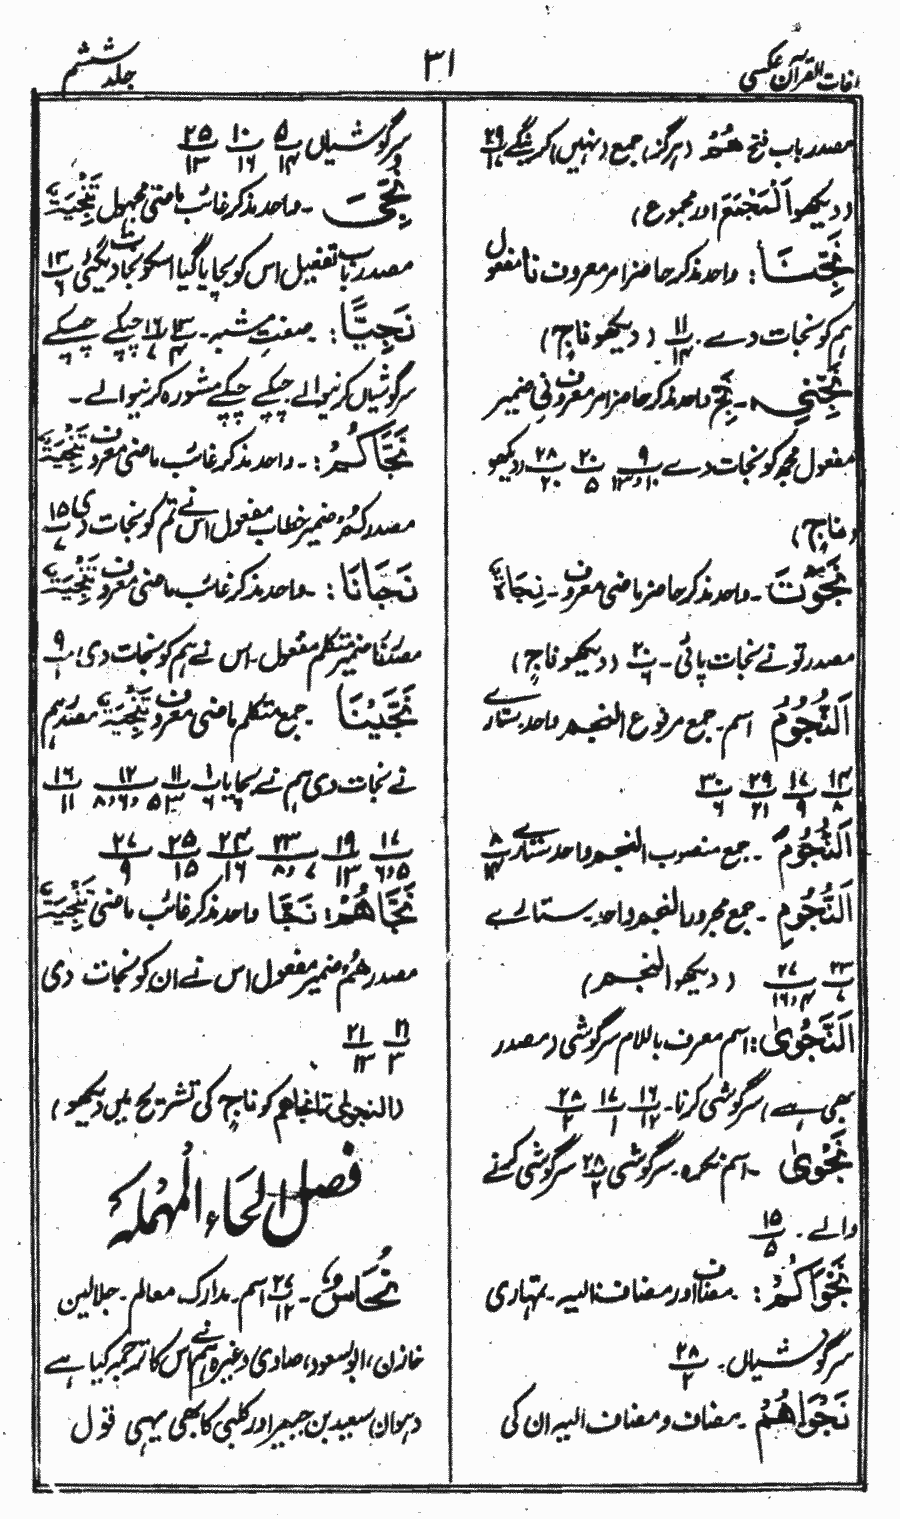 لغات القرآن عکسی
۳۱
جلد ششم
مصدر باب فتح ھُمْ (ہرگز) جمع (نہیں) کرینگے ۲۹/۱۷
(دیکھو اَلَنْ نَجْمَعَ اور مجموع)
نَجِّنَا: واحد مذکر حاضر امر معروف نا مفعول
ہم کو نجات دے۔ ۱۱/۱۴ (دیکھو ناجٍ)
نَجِّنِیْ۔ نَجِّ واحد مذکر حاضر امر معروف نی ضمیر
مفعول مجھ کو نجات دے ۹/۱۰،۱۳ ۲۰/۵ ۲۸/۲۰ (دیکھو
ناجٍ)
نَجَوْتَ۔ واحد مذکر حاضر ماضی معروف۔ نِجَاۃٌ
مصدر تو نے نجات پائی۔ ۲۰/۶ (دیکھو ناجٍ)
اَلنُّجُوْمُ اسم۔ جمع مرفوع النجم واحد ستارے
۱۴/۸ ۱۷/۹ ۲۹/۲۱ ۳۰/۶
اَلنُّجُوْمَ۔ جمع منصوب النجم واحد ستارے ۸/۱۴
اَلنُّجُوْمِ۔ جمع مجرور النجم واحد۔ ستارے
۲۳/۷ ۲۷/۱۶،۴ (دیکھو النجم)
اَلنَّجْوٰی: اسم معرف باللام سرگوشی (مصدر
بھی ہے) سرگوشی کرنا۔ ۱۶/۱۲ ۱۷/۱ ۲۸/۲
نَجْوٰی۔ اسم نکرہ۔ سرگوشی ۲۸/۲ سرگوشی کرنے
والے۔ ۱۵/۵
نَجْوَاکُمْ: مضاف اور مضاف الیہ۔ تمہاری
سرگوشیاں۔ ۲۸/۲
نَجْوَاھُمْ۔ مضاف و مضاف الیہ ان کی
سرگوشیاں ۵/۱۴ ۱۰/۱۶ ۲۵/۱۳
نُجِّیَ۔ واحد مذکر غائب ماضی مجہول تَنْجِیَۃٌ
مصدر باب تفعیل اس کو بچایا گیا اسکو نجات دیگئی ۱۳/۶
نَجِیًّا: صفت مشبہ۔ ۱۳/۴ ۱۶/۷ چپکے چپکے
سرگوشیاں کرنیوالے چپکے چپکے مشورہ کرنیوالے۔
نَجَّاکُمْ:۔ واحد مذکر غائب ماضی معروف تَنْجِیَۃٌ
مصدر کُمْ ضمیر خطاب مفعول اس نے تم کو نجات دی ۱۵/۷
نَجَّانَا:۔ واحد مذکر غائب ماضی معروف تَنْجِیَۃٌ
مصدر نَا ضمیر متکلم مفعول۔ اس نے ہم کو نجات دی ۹/۱
نَجَّیْنَا۔ جمع متکلم ماضی معروف تَنْجِیَۃٌ مصدر ہم
نے نجات دی ہم نے بچایا ۱/۶ ۱۱/۵،۳ ۱۲/۸،۶ ۱۶/۱۱
۱۷/۶،۵ ۱۹/۱۳ ۲۳/۸،۷ ۲۴/۱۶ ۲۵/۱۵ ۲۷/۹
نَجَّاھُمْ: نَجَّا واحد مذکر غائب ماضی تَنْجِیَۃٌ
مصدر ھُمْ ضمیر مفعول اس نے ان کو نجات دی
۲۱/۳ ۲۱/۱۳
(النجویٰ تا نجاھم کو ناجٍ کی تشریح میں دیکھو)
فصل الحاء المہملہ
نُحَاسٌ۔ ۲۷/۱۲ اسم۔ مدارک۔ معالم۔ جلالین
خازن، ابوالسعود، صاوی وغیرہ نے ہم اس کا ترجمہ کیا ہے
دھواں) سعید بن جبیر اور کلبی کا بھی یہی قول